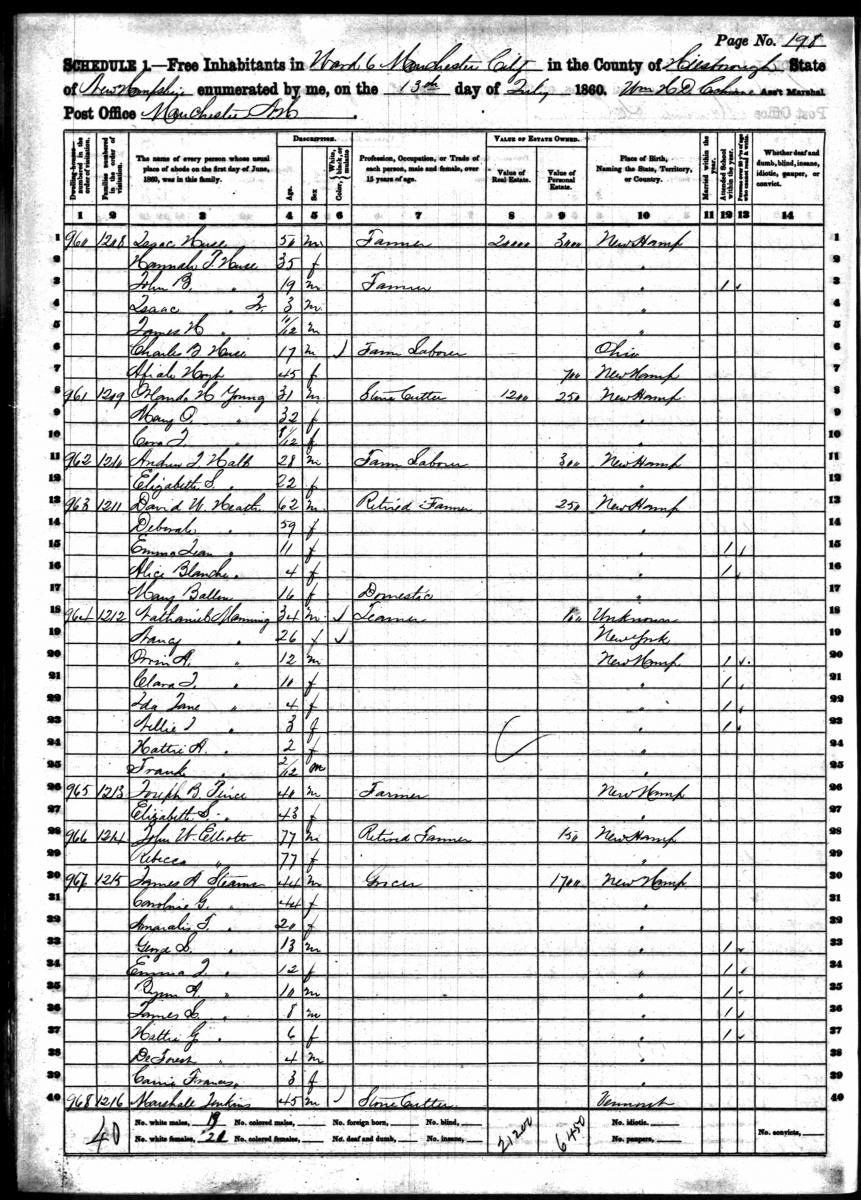 Page No. 198
SCHEDULE 1.—Free Inhabitants in Ward 6 Manchester City in the County of Hillsborough State
of New Hampshire enumerated by me, on the 13th day of July 1860. Wm H. D. Cochrane Ass't Marshal
Post Office Manchester N.H.
Dwelling-houses—numbered in the order of visitation. Families numbered in the order of visitation. The name of every person whose usual place of abode on the first day of June, 1860, was in this family. DESCRIPTION. Age. Sex. Color, White, black, or mulatto. Profession, Occupation, or Trade of each person, male and female, over 15 years of age. VALUE OF ESTATE OWNED. Value of Real Estate. Value of Personal Estate. Place of Birth, Naming the State, Territory, or Country. Married within the year. Attended School within the year. Persons over 20 y'rs of age who cannot read & write. Whether deaf and dumb, blind, insane, idiotic, pauper, or convict.
1 2 3 4 5 6 7 8 9 10 11 12 13 14
1 960 1208 Isaac Huse 50 m Farmer 20000 3000 New Hamp 1
2 Hannah T. Huse 35 f " 2
3 John B. " 19 m Farmer " 1 3
4 Isaac " Jr. 3 m " 4
5 James H " 11/12 m " 5
6 Charles B Huse 17 m Farm Laborer Ohio 6
7 Hoyt 45 f 700 New Hamp 7
8 961 1209 Orlando H Young 31 m Stone Cutter 1200 250 New Hamp 8
9 Mary O. " 32 f " 9
10 Cora J. 8/12 f " 10
11 962 1210 Andrew J Hall 28 m Farm Laborer 300 New Hamp 11
12 Elizabeth S. " 22 f " 12
13 963 1211 David W. Heath 62 m Retired Farmer 250 New Hamp 13
14 Deborah " 59 f " 14
15 Emma Jean " 11 f " 1 15
16 Alice Blanche " 4 f " 1 16
17 Mary Ballou 16 f Domestic " 17
18 964 1212 Nathaniel Manning 34 m Teamer 100 Unknown 18
19 Nancy " 26 f New York 19
20 Orrin A. " 12 m New Hamp 1 20
21 Clara J. " 10 f " 1 21
22 Ida Jane " 4 f " 1 22
23 Nellie J " 3 f " 1 23
24 Hattie A. " 2 f " 24
25 Frank " 2/12 m " 25
26 965 1213 Joseph B. 40 m Farmer New Hamp 26
27 Elizabeth S. " 43 f " 27
28 966 1214 John W. Elliott 77 m Retired Farmer 150 New Hamp 28
29 Rebecca " 77 f " 29
30 967 1215 James A Stearns 44 m Grocer 1700 New Hamp 30
31 Caroline G. " 44 f " 31
32 20 f " 32
33 George S. " 13 m " 1 33
34 Emma J. " 12 f " 1 34
35 A. " 10 m " 1 35
36 James S. " 8 m " 1 36
37 Hattie G. " 6 f " 1 37
38 DeForest " 4 m " 38
39 Carrie Frances " 3 f " 39
40 968 1216 Marshall Jenkins 45 m Stone Cutter Vermont 40
40 No. white males, 19 No. colored males, No. foreign born, No. blind, 21200 6450 No. idiotic, No. convicts,
No. white females, 20 No. colored females, No. deaf and dumb, No. insane, No. paupers,